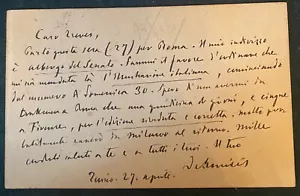 Caro Treves,
Parto questa sera (27) per Roma. Il mio indirizzo
è albergo del Senato. Fammi il favore d'ordinare che
mi sia mandata là l'Illustrazione italiana, cominciando
dal numero di Domenica 30. Spero d'non avermi da
trattenere a Roma che una quindicina di giorni, e cinque
a Firenze, per l'edizione riveduta e corretta. Molto prob
abilmente verrò da Milano al ritorno. Mille
cordiali saluti a te e a tutti i tuoi. Il tuo
De Amicis
Torino. 27. aprile.